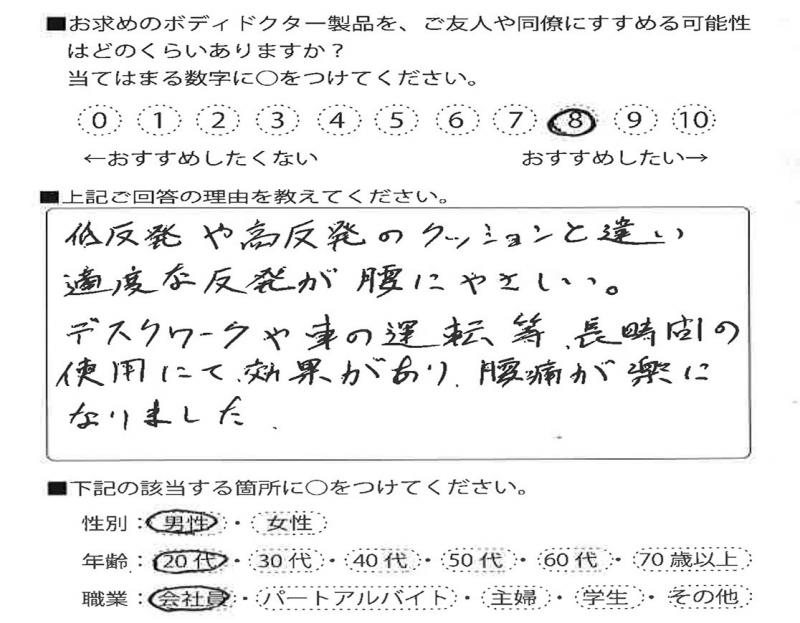 ■お求めのボディドクター製品を、ご友人や同僚にすすめる可能性
はどのくらいありますか？
当てはまる数字に○をつけてください。
0 1 2 3 4 5 6 7 8 9 10
←おすすめしたくない おすすめしたい→
■上記ご回答の理由を教えてください。
低反発や高反発のクッションと違い
適度な反発が腰にやさしい。
デスクワークや車の運転等、長時間の
使用にて、効果があり、腰痛が楽に
なりました。
■下記の該当する箇所に○をつけてください。
性別：男性・女性
年齢：20代・30代・40代・50代・60代・70歳以上
職業：会社員・パートアルバイト・主婦・学生・その他